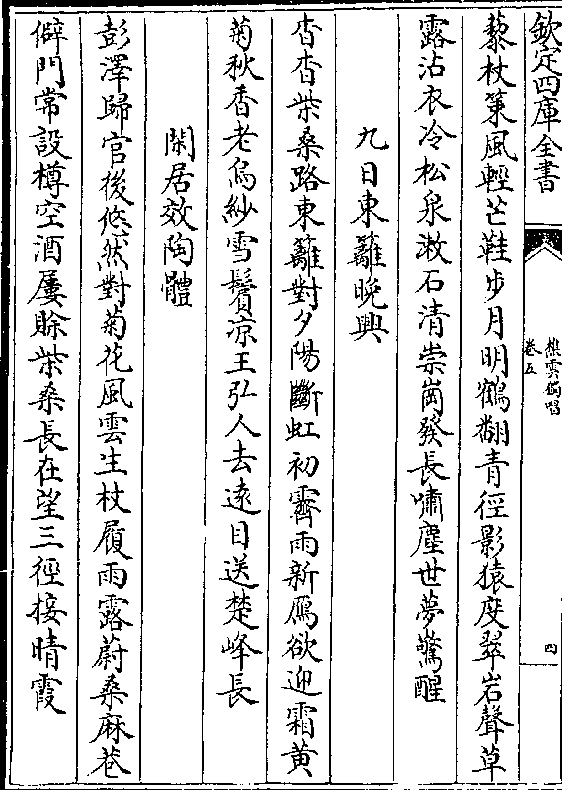 欽定四庫全書
樵雲獨唱
卷五
四
藜杖策風輕芒鞋步月明鶴翻青徑影猿度翠岩聲草
露沾衣冷松泉潄石清崇崗發長嘯塵世夢驚醒
九日東籬晚興
杳杳柴桑路東籬對夕陽斷虹初霽雨新鴈欲迎霜黄
菊秋香老烏紗雪鬢凉王弘人去遠目送楚峰長
閑居效陶體
彭澤歸官後悠然對菊花風雲生杖履雨露蔚桑麻巷
僻門常設樽空酒屢賒柴桑長在望三徑接晴霞